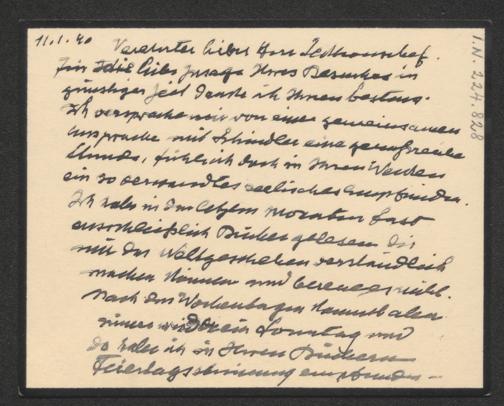 11.1.40 Verehrter lieber Herr
Für die liebe Zusage Ihres Besuches in
günstiger Zeit danke ich Ihnen bestens.
Ich verspreche mir von einer gemeinsamen
Aussprache mit Schindler eine genußreiche
Stunde, fühl ich doch in Ihren Werken
ein so verwandtes seelisches Empfinden.
Ich habe in den letzten Monaten fast
ausschließlich Bücher gelesen die
mit das Weltgeschehen verständlich
machen können und
Nach den Wochentagen kommt aber
immer wieder ein Sonntag und
da habe ich in Ihren Büchern
Feiertagsstimmung empfunden –
I.N. 224.828